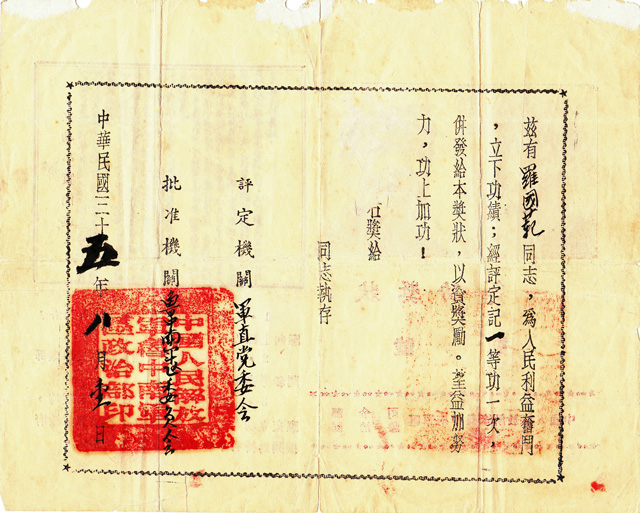 茲有羅國乾同志，為人民利益奮鬥
，立下功績；經評定記一等功一次，
併發給本獎狀，以資獎勵。望益加努
力，功上加功！
右獎給
同志執存
評定機關 軍直党委会
批准機關 魯中南軍区委員会
中華民國三十五年八月壹日
中國人民解放
軍魯中南軍
區政治部印